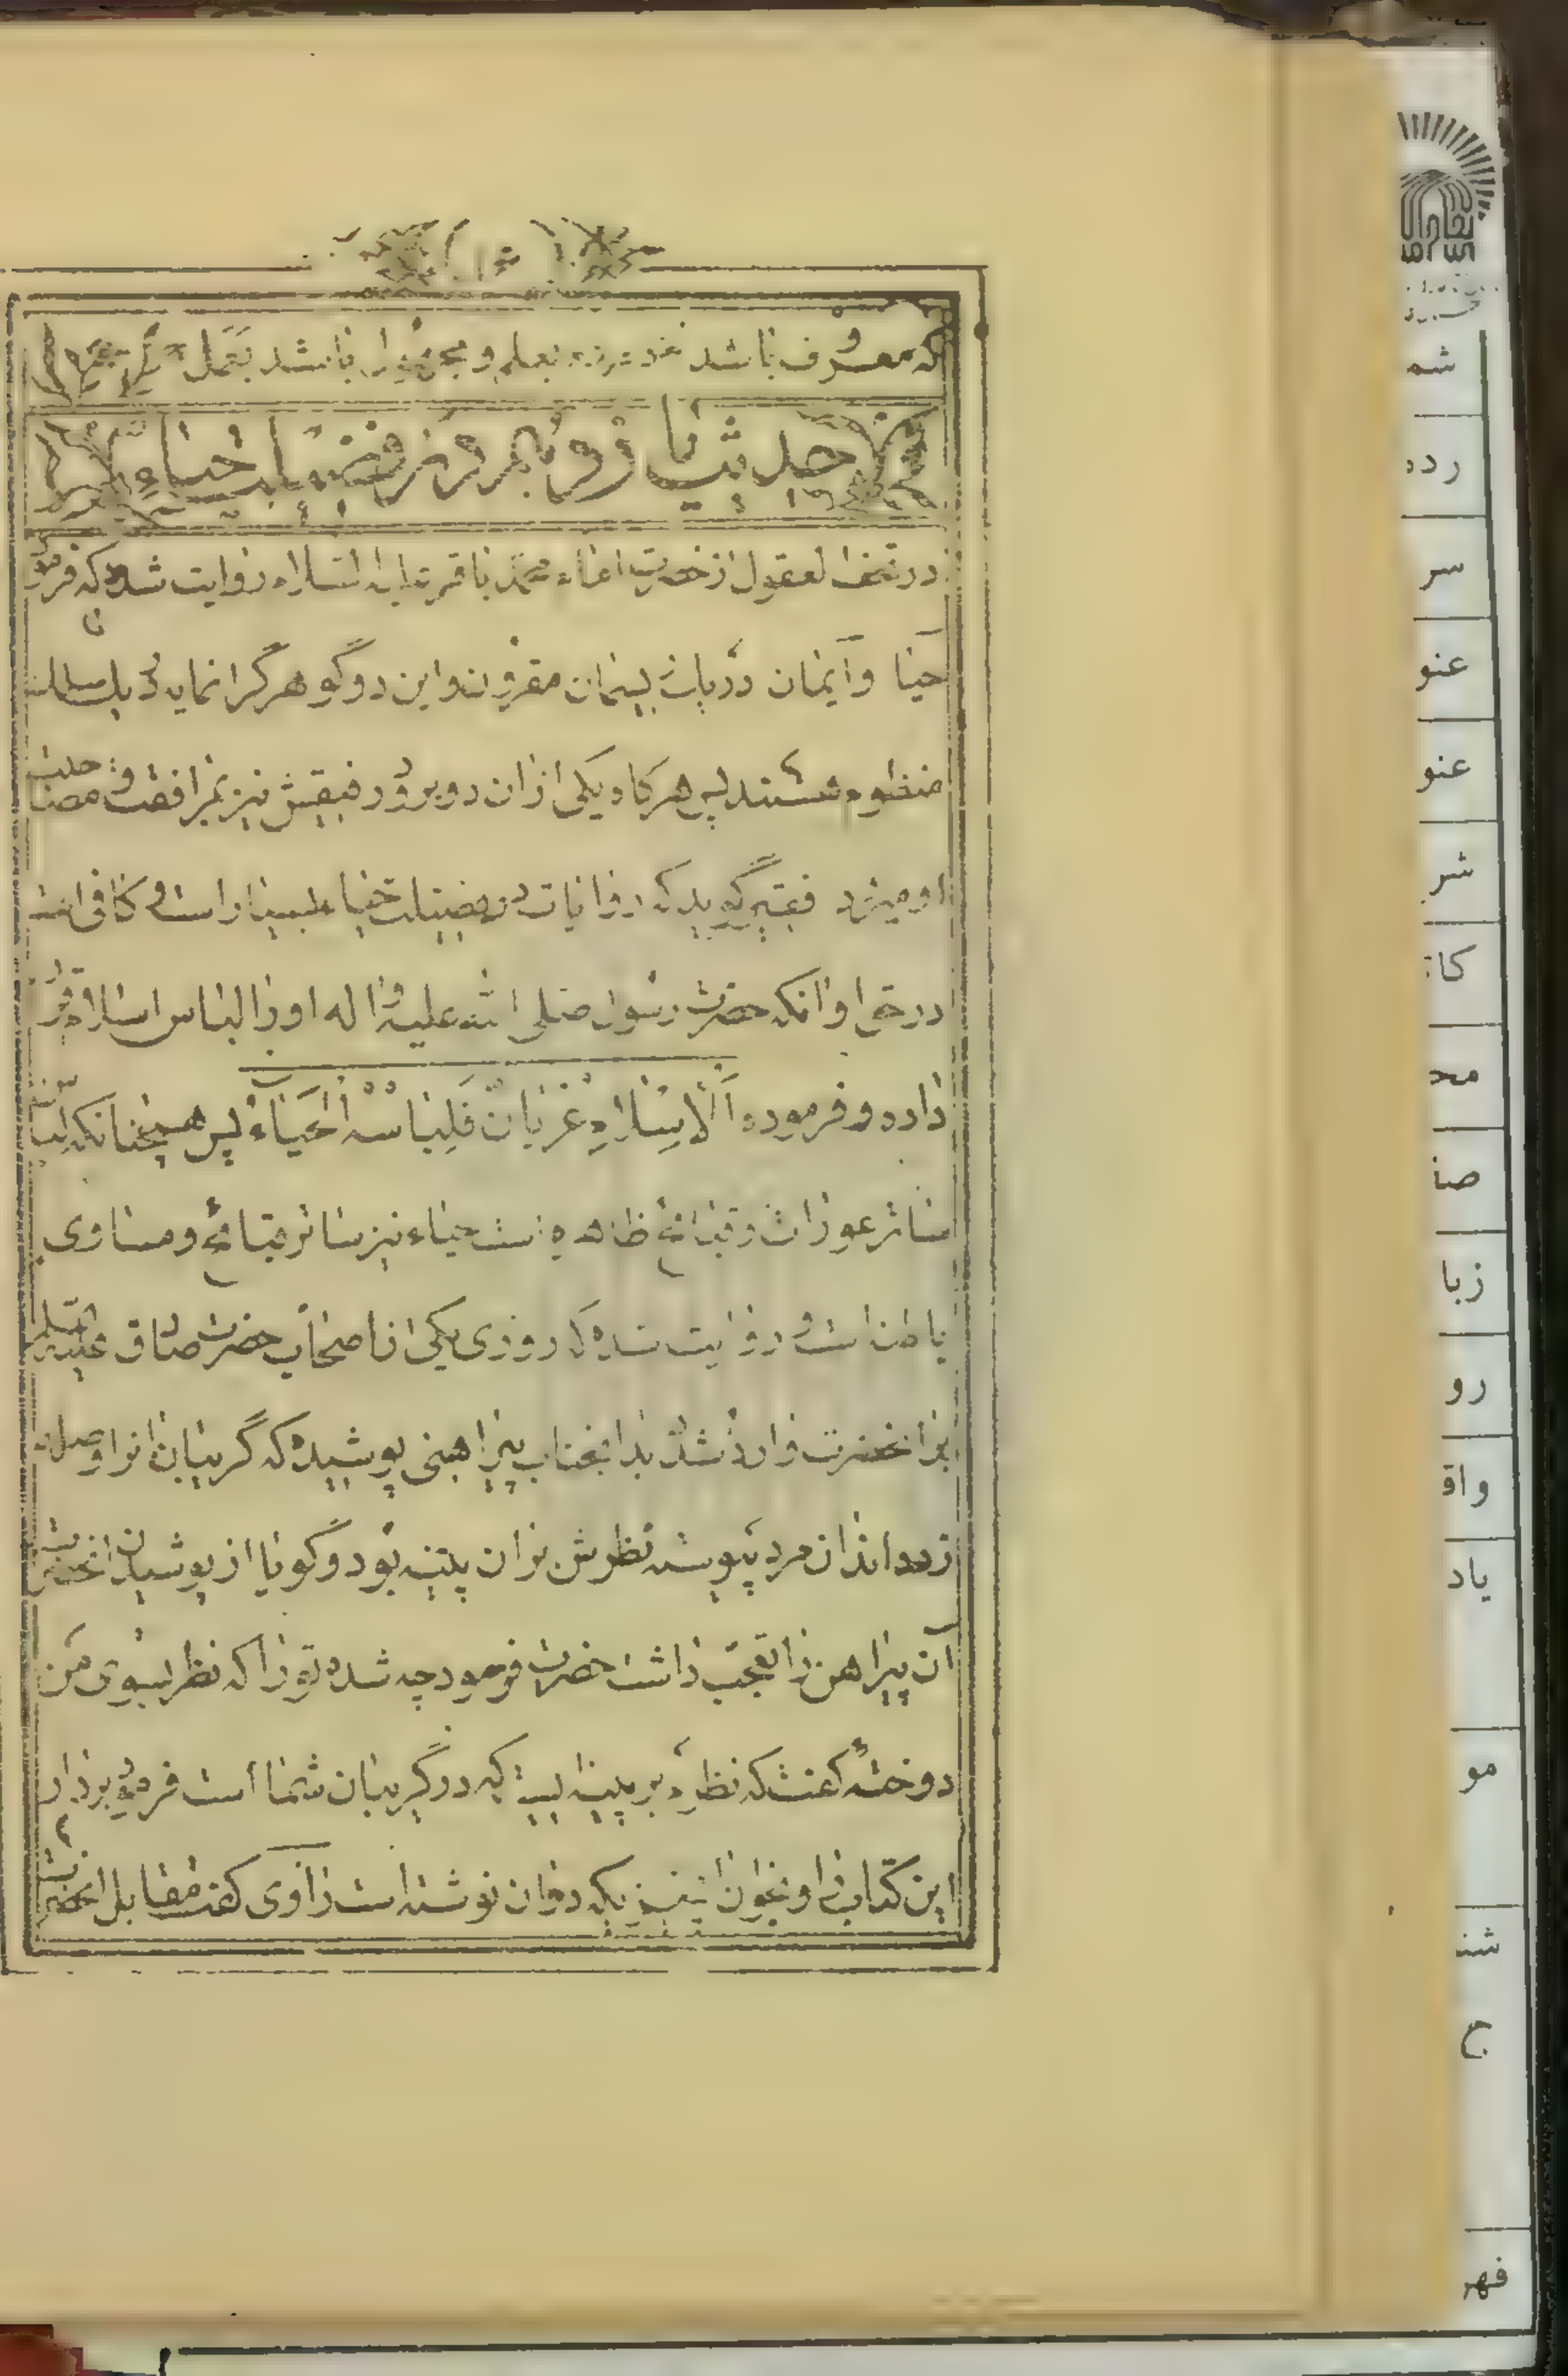 که معروف باشد بعلم و باشد بعمل
حدیث یازدهم در فضیلت حیاء
در تحف العقول از حضرت امام محمد باقر علیه السلام روایت شده که فرمود
حیا و آیمان در یک ریسمان مقرون و این دو گوهر گرانمایه در یک سلسله
منظوم هستند پس هرگاه یکی از ان دو برود رفیقش نیز بمرافقت و مصاحبت
او میرود فقیر گوید که روایات در فضیلت حیاء بسیار است و کافی است
در حق او انکه حضرت رسول صلی الله علیه و اله او را لباس اسلام قرار
داده و فرموده اَلْاِسْلامُ عُرْیانٌ فَلِباسُهُ الْحَیاءُ پس همچنانکه لباس
ساتر عورات و قبایح ظاهره است حیاء نیز ساتر قبایح و مساوی
باطنه است و روایت شده که روزی یکی از اصحاب حضرت صادق علیه السلام
بر انحضرت وارد شد دید انجناب پیراهنی پوشیده که گریبان انرا وصله
زده اند ان مرد پیوسته نظرش بر ان پینه بود و گویا از پوشیدن انحضرت
آن پیراهن را تعجب داشت حضرت فرمود چه شده تو را که نظر بسوی من
دوخته گفت که نظرم بر پینه ایست که در گریبان شما است فرمود بردار
این کتاب را و بخوان ان چیزیکه در ان نوشته است راوی گفت مقابل انحضرت
شم
رده
سر
عنو
عنو
شر
کا
مح
صا
زبا
رو
واق
یاد
مو
شن
ج
فهر